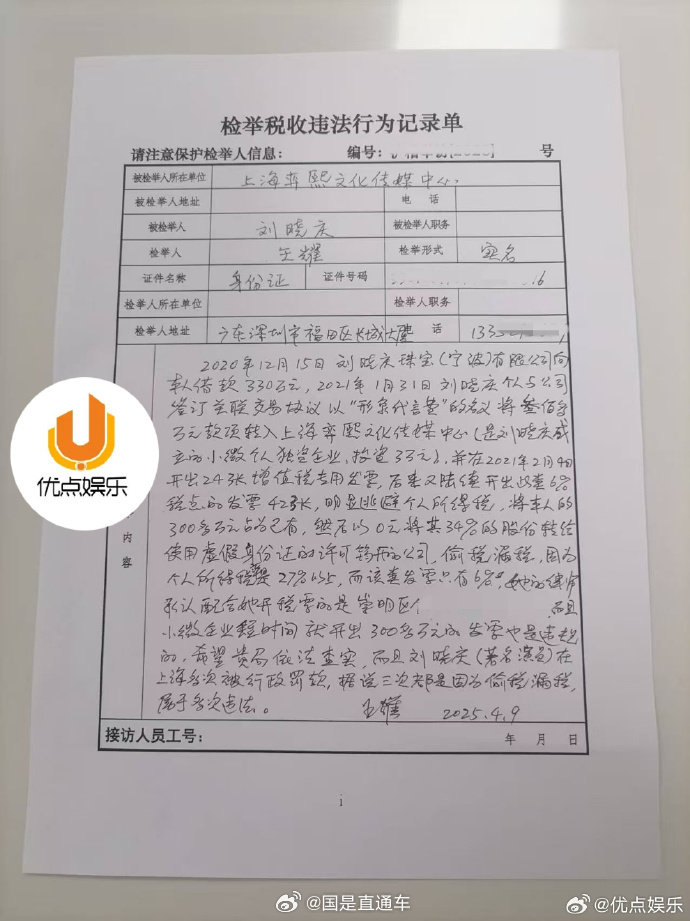 检举税收违法行为记录单
请注意保护检举人信息: 编号: 号
被检举人所在单位 上海弈熙文化传媒中心
被检举人地址 电 话
被检举人 刘晓庆 被检举人职务
检举人 王耀 检举形式 实名
证件名称 身份证 证件号码 6
检举人所在单位 检举人职务
检举人地址 广东深圳市福田区长城大 话 133
2020年12月15日刘晓庆珠宝(宁波)有限公司向
本人借款330万元,2021年1月31日刘晓庆个人与公司
签订关联交易协议以“形象代言费”的名义将叁佰多
万元款项转入上海弈熙文化传媒中心(是刘晓庆成
立的小微个人独资企业,投资3万元),并在2021年2月4日
开出24张增值税专用发票,后来又陆续开出此套6%
税点的发票42张,明显逃避个人所得税,将本人的
300多万元占为已有,然后以0元将其34%的股份转给
使用虚假身份证的许可筠开的公司,偷税漏税,因为
内容 个人所得税是27%以上,而该套发票只有6%,她的律师
承认配合她开税票的是崇明区 而且
小微企业短时间就开出300多万元的发票也是违规
的,希望贵局依法查实,而且刘晓庆(著名演员)在
上海多次被行政罚款,据说三次都是因为偷税漏税,
属于多次违法。 王耀 2025.4.9
接访人员工号: 年 月 日
1
优点娱乐
@国是直通车
@优点娱乐